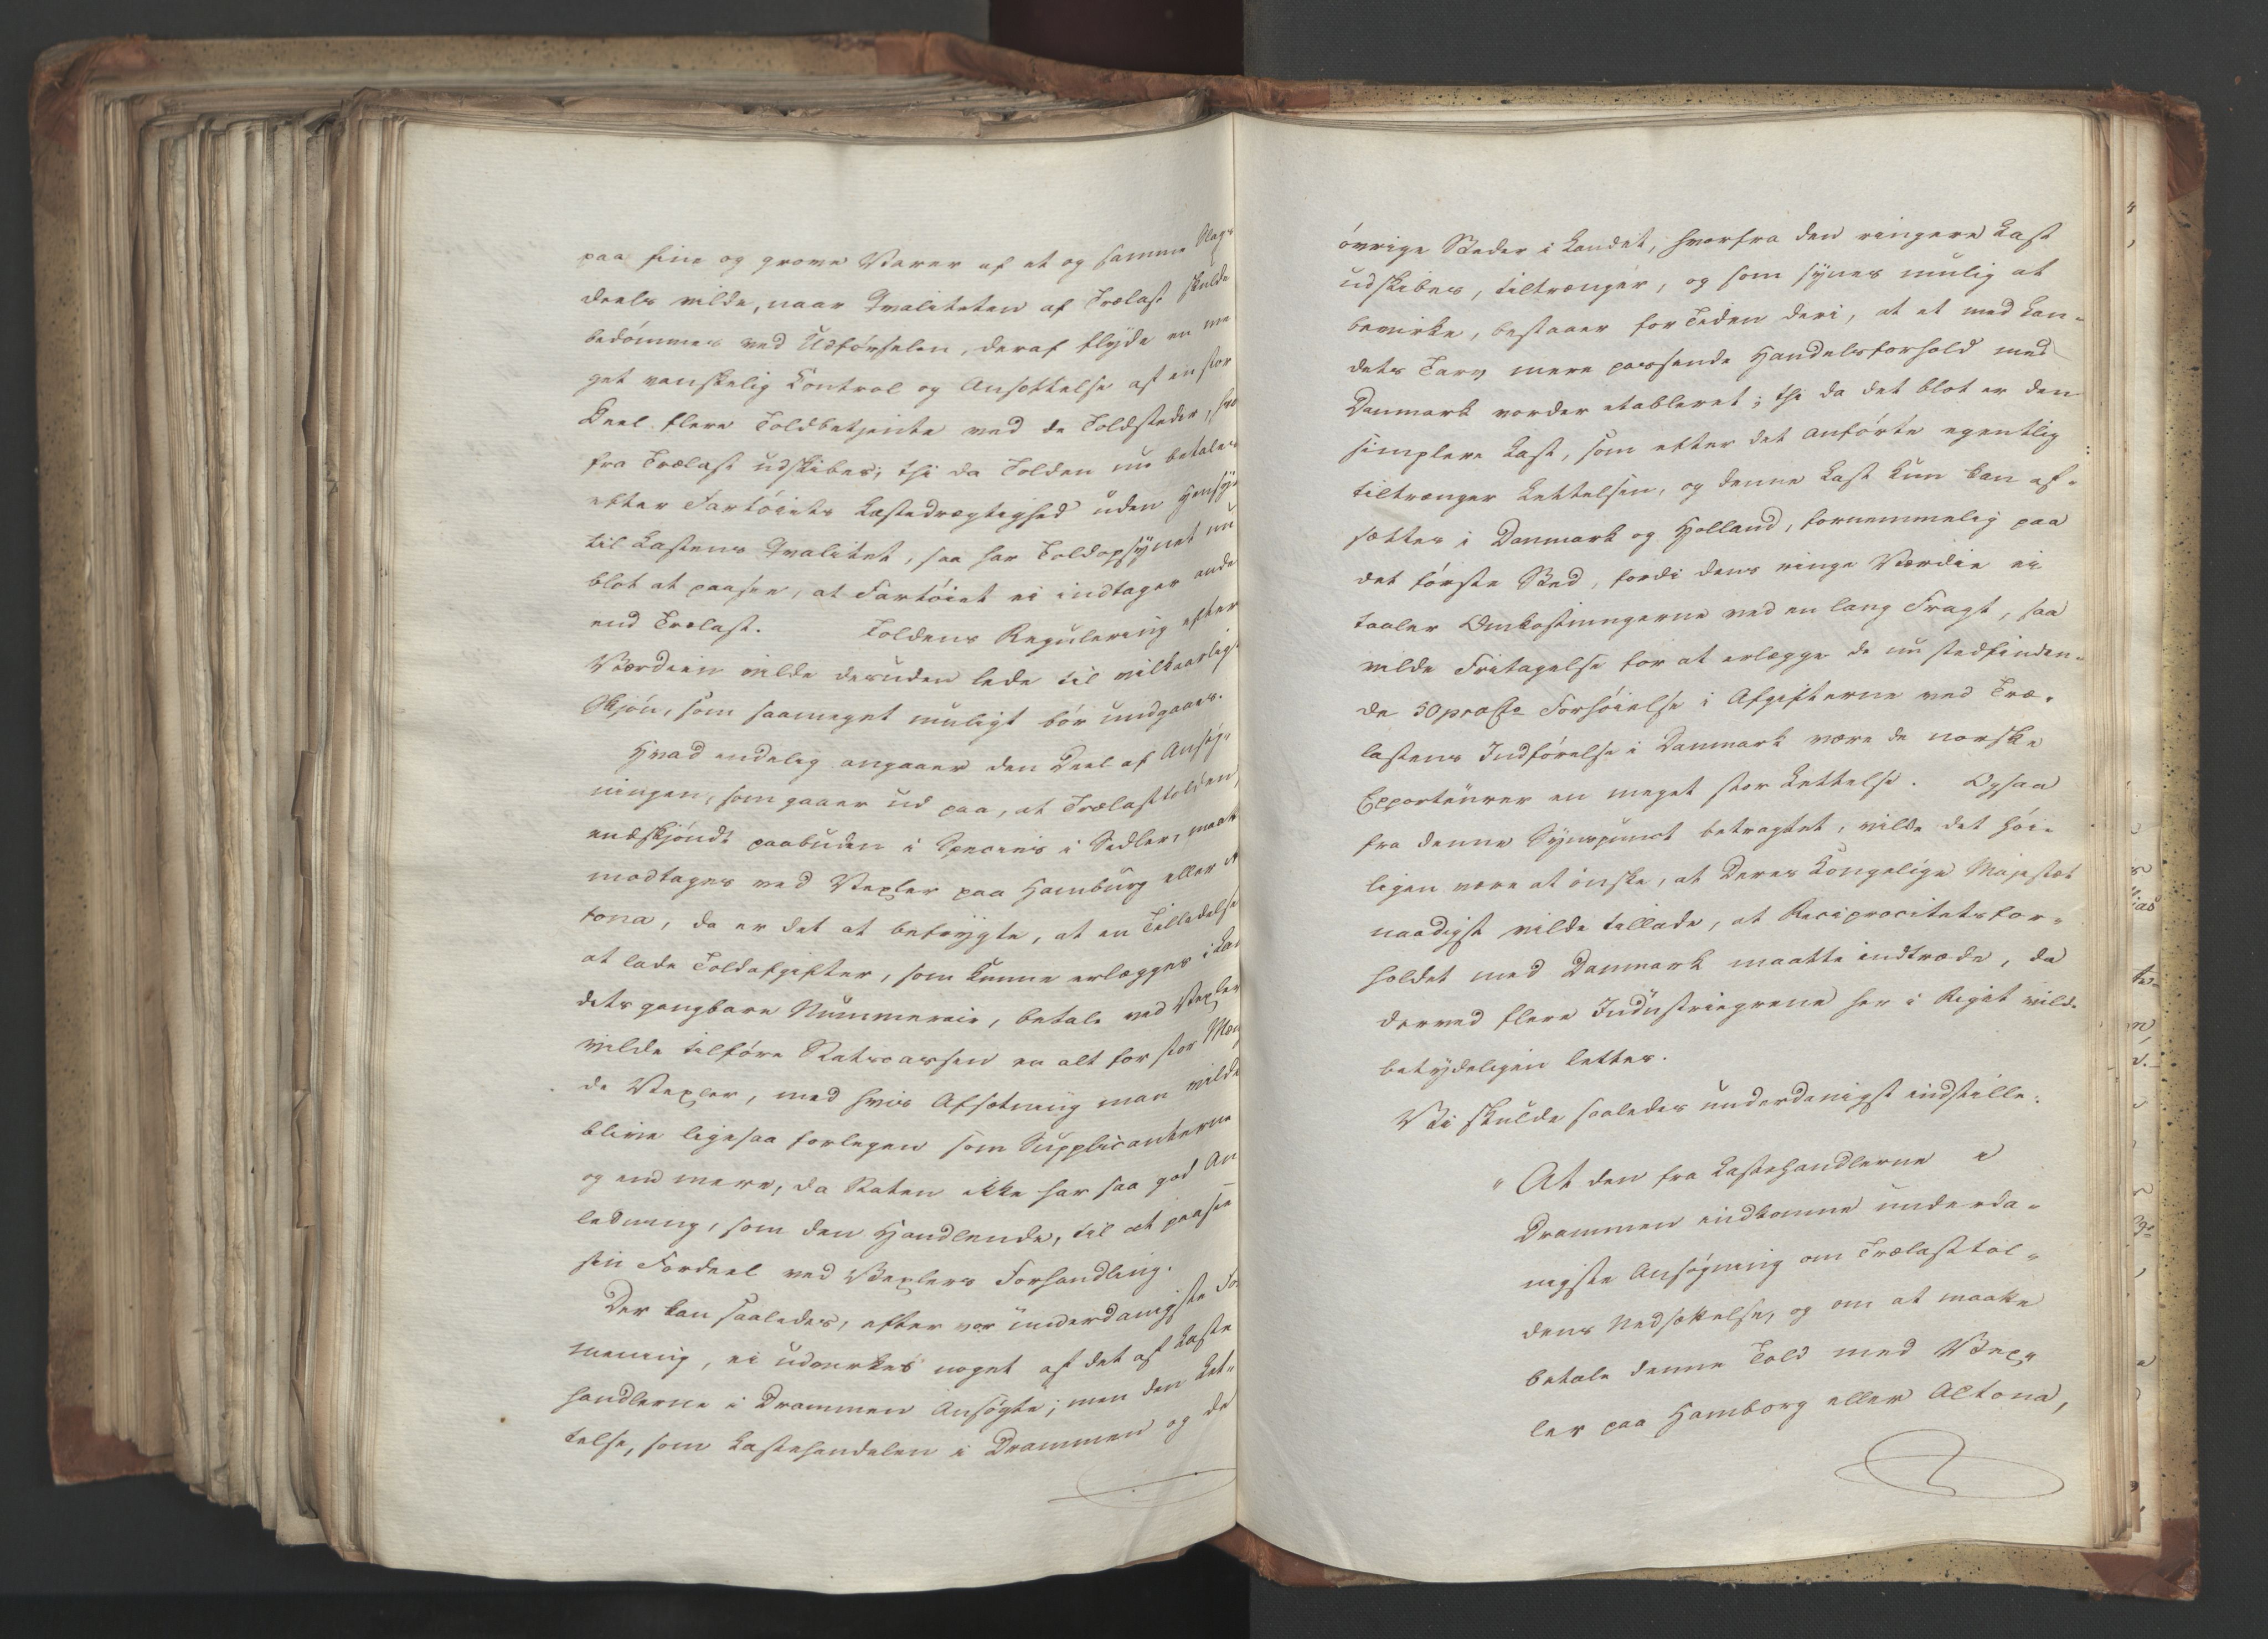 paa fine og grove Varer af et og samme Slags
deels vilde, naar Qvaliteten af Trælast skulde
bedömmes ved Udförselen, deraf flyde en me
get vanskelig Control og Ansættelse af en stor
Deel flere Toldbetjente ved de Toldsteder, hvor
fra Trælast udskibes; thi da Tolden nu betales
efter Fartöiets Læstedrægtighed uden Hensyn
til Lastens Qvalitet, saa har Toldopsynet nu
blot at paasee, at Fartöiet ei indtager andet
end Trælast. Toldens Regulering efter
Værdien vilde desuden lede til vilkaarligt
Skjön, som saameget muligt bör undgaaes.
Hvad endelig angaaer den Deel af Ansög-
ningen, som gaaer ud paa, at Trælasttolden,
endskjöndt paabuden i Species i Sedler, maatte
modtages ved Vexler paa Hamburg eller Al
tona, da er det at befrygte, at en Tilladelse
at lade Toldafgifter, som kunne erlægges i Lan
dets gangbare Nummeraire, betale ved Vexler
vilde tilföre Statscassen en alt for stor Mæng
de Vexler, med hvis Afsætning man vilde
blive ligesaa forlegen som Supplicanterne
og end mere, da Staten ikke har saa god An
ledning, som den Handlende, til at paasee
sin Fordeel ved Vexlers Forhandling.
Der kan saaledes, efter vor underdanigste For
mening, ei udvirkes noget af det af Laste
handlerne i Drammen Ansögte; men den Let-
telse, som Lastehandelen i Drammen og de
övrige Steder i Landet, hvorfra den ringere Last
udskibes, tiltrænger, og som synes mulig at
bevirke, bestaaer for Tiden deri, at et med Lan-
dets Tarv mere passende Handelsforhold med
Danmark vorder etableret; thi da det blot er den
simplere Last, som efter det anförte egentlig
tiltrænger Lettelsen, og denne Last kun kan af-
sættes i Danmark og Holland, fornemmelig paa
det förste Sted, fordi dens ringe Værdie ei
taaler Omkostningerne ved en lang Fragt, saa
vilde Fritagelse for at erlægge de nu stedfinden-
de 50 procto Forhöielse i Afgifterne ved Træ-
lastens Indförelse i Danmark være de norske
Exporteurer en meget stor Lettelse. Ogsaa
fra denne Synspunct betragtet, vilde det höi-
ligen være at önske, at Deres Kongelige Majestæt
naadigst vilde tillade, at Reciprocitetsfor-
holdet med Danmark maatte indtræde, da
derved flere Industriegrene her i Riget vilde
betydeligen lettes.
Vi skulde saaledes underdanigst indstille:
" At den fra Lastehandlerne i
Drammen indkomne underda-
nigste Ansögning om Trælasttol-
dens Nedsættelse, og om at maatte
betale denne Told med Vex-
ler paa Hamborg eller Altona,